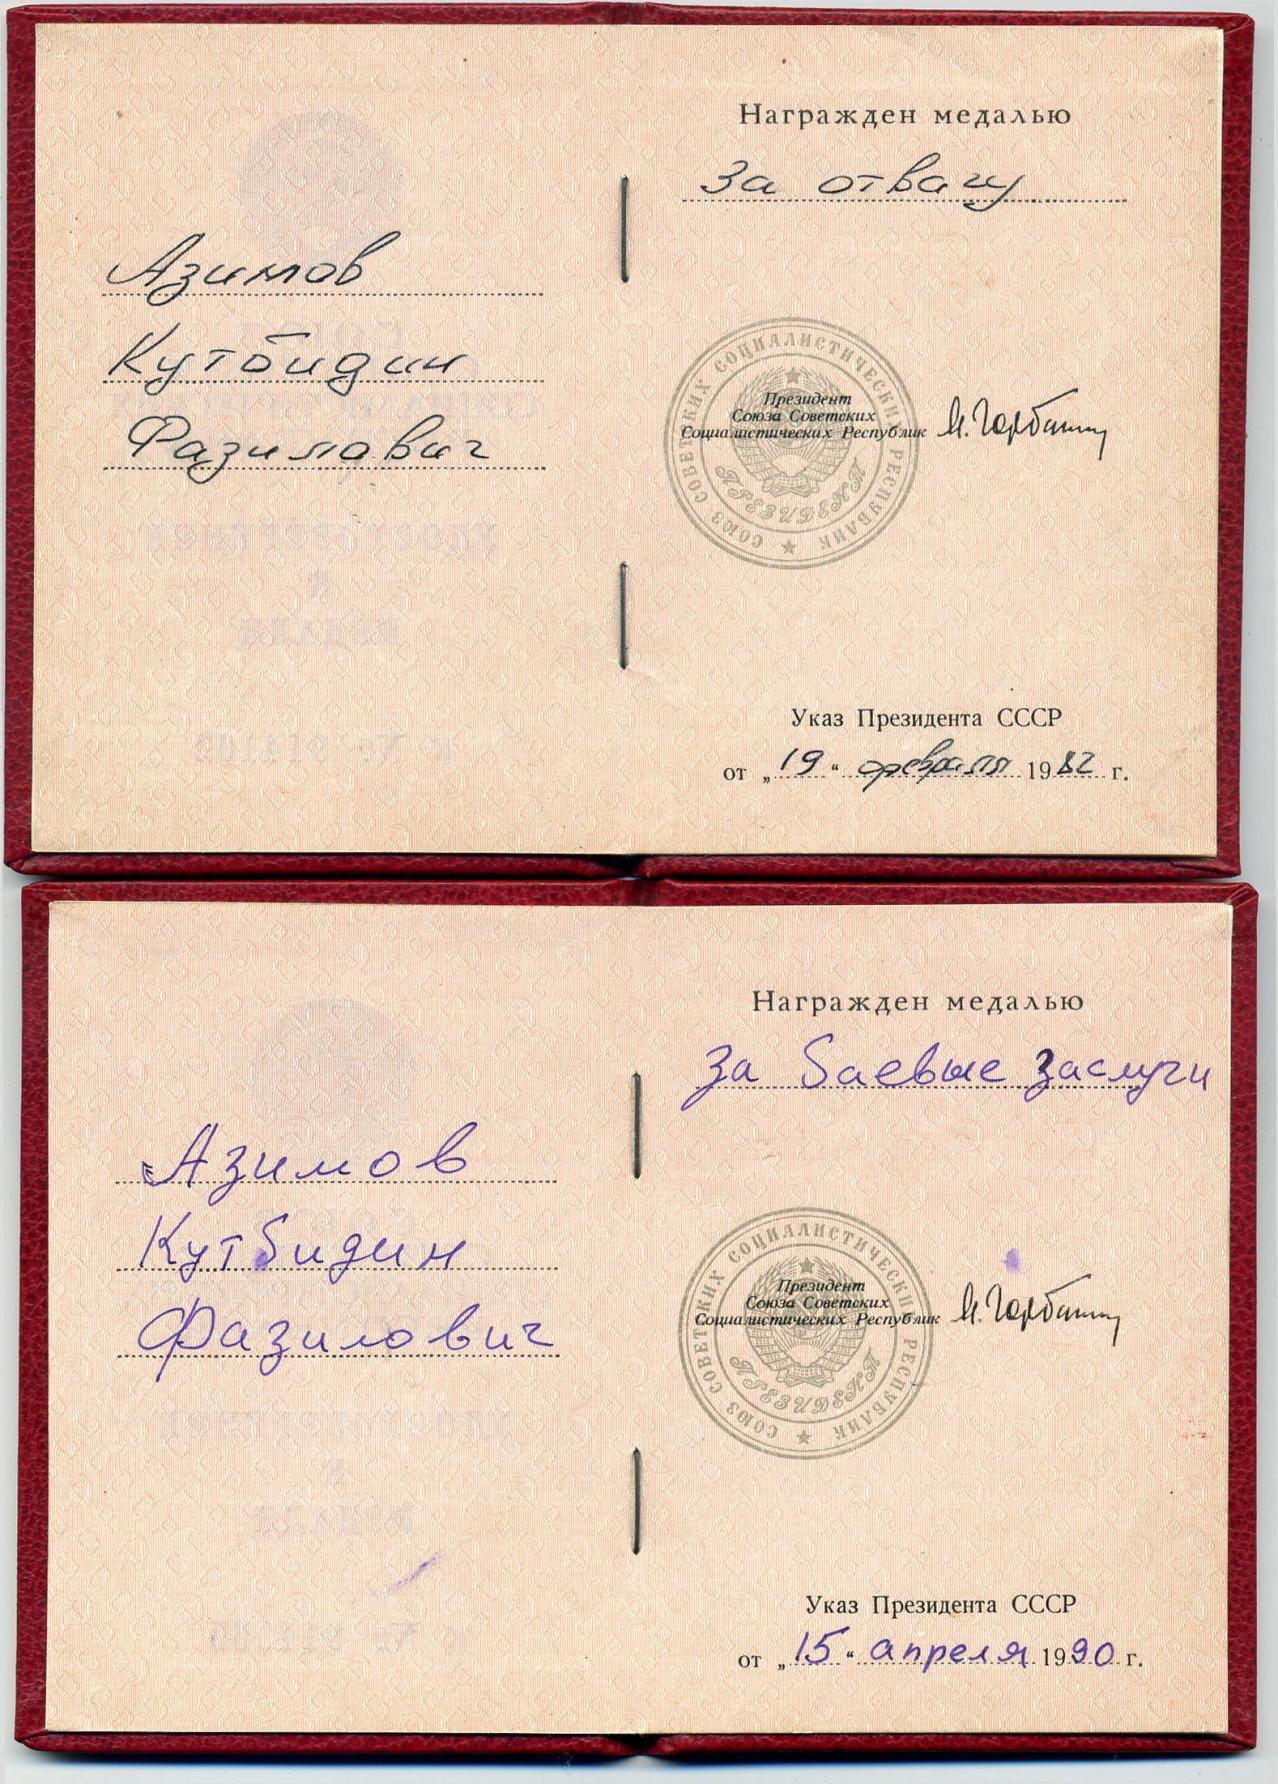 Награжден медалью
За отвагу
Азимов
Кутбидин
Фазилович
СОЮЗ СОВЕТСКИХ СОЦИАЛИСТИЧЕСКИХ РЕСПУБЛИК
ПРЕЗИДЕНТ
Президент
Союза Советских
Социалистических Республик М. Горбачев
Указ Президента СССР
от „19“ февраля 1982 г.
Награжден медалью
За баевые заслуги
Азимов
Кутбидин
Фазилович
СОЮЗ СОВЕТСКИХ СОЦИАЛИСТИЧЕСКИХ РЕСПУБЛИК
ПРЕЗИДЕНТ
Президент
Союза Советских
Социалистических Республик М. Горбачев
Указ Президента СССР
от „15“ апреля 1990 г.